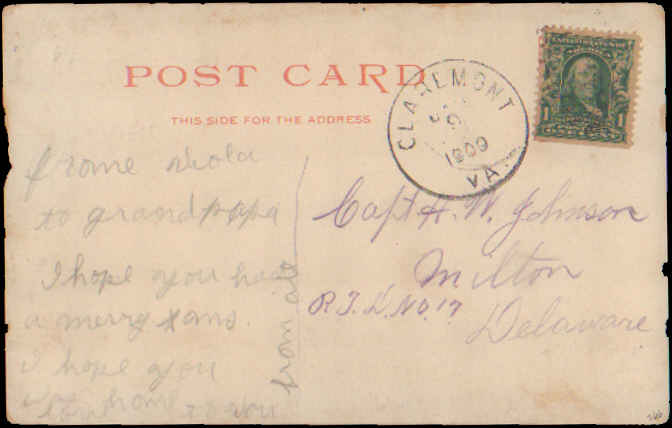 POST CARD
THIS SIDE FOR THE ADDRESS
CLAREMONT
1909
VA.
1 1
frome viola
to grandpapa
I hope you had
a merry xams.
I hope you
home to you
from all
Capt H. W. Johnson
Milton
R.F.D. No. 17
Delaware